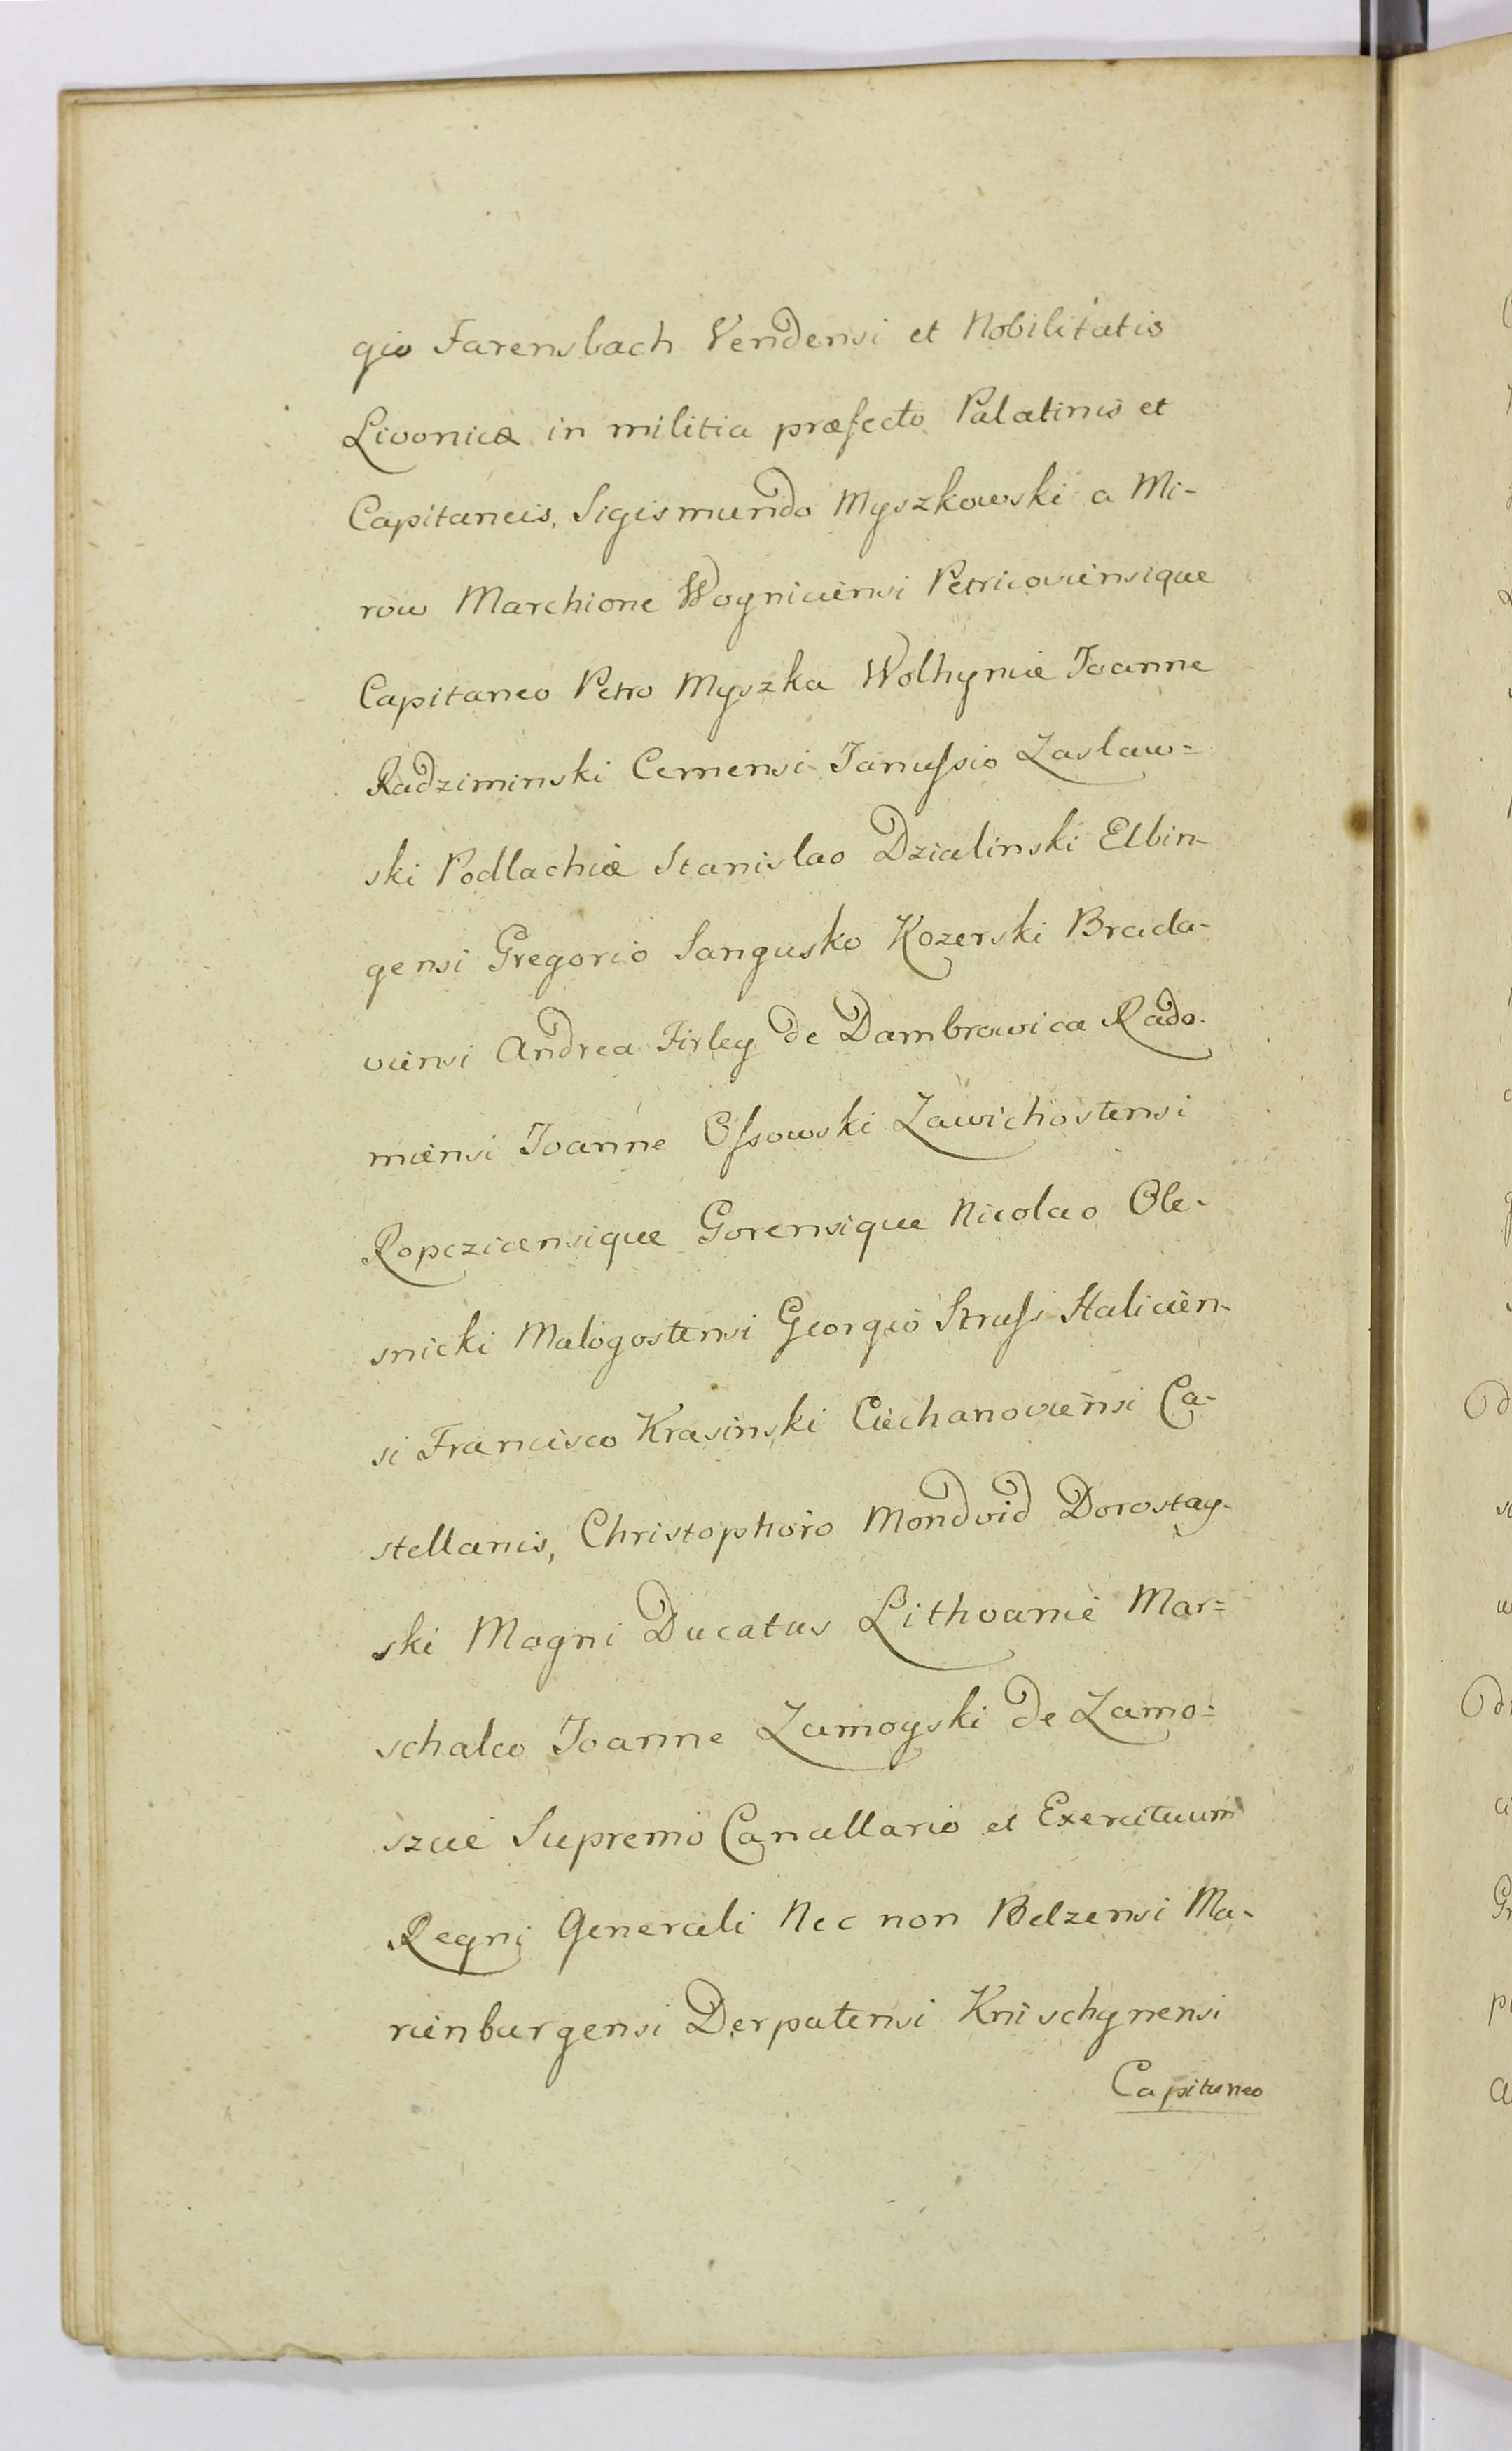 gio Farensbach Vendensi et Nobilitatis
Livonicæ in militia præfecto Palatinis et
Capitaneis, Sigismundo Myszkowski a Mi-
row Marchione Woyniciensi Petricoviensique
Capitaneo Petro Myszka Wolhyniæ Joanne
Radziminski Cernensi Janussio Zaslaw=
ski Podlachiæ Stanislao Dzialinski Elbin-
gensi Gregorio Sangusko Kozerski Bracla-
viensi Andrea Firley de Dambrowica Rado-
miensi Joanne Ossowski Zawichostensi
Ropcziciensique Gorensique Nicolao Ole-
snicki Malogostensi Georgio Struss Halicien-
si Francisco Krasinski Ciechanoviensi Ca-
stellanis, Christophoro Mondvid Dorostay-
ski Magni Ducatus Lithvaniæ Mar=
schalco Joanne Zamoyski de Zamo=
szcie Supremo Cancellario et Exercituum
Regni Generali Nec non Belzensi Ma-
rienburgensi Derpatensi Knischynensi
Capitaneo